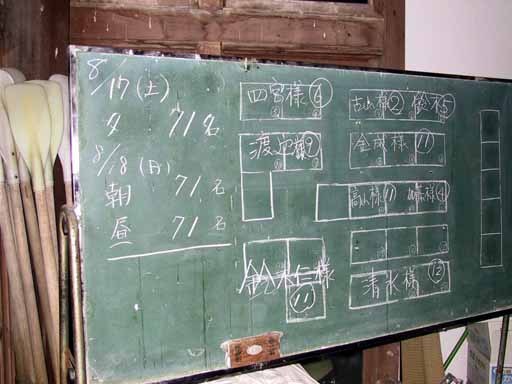 8/17(土)
夕 71名
8/18(日)
朝 71名
昼 71名
四宮様⑥
古山様② 鈴木⑤
渡辺様⑨
金成様⑪
高山様⑪ 加藤様④
鈴木仁様
⑪
清水様⑫